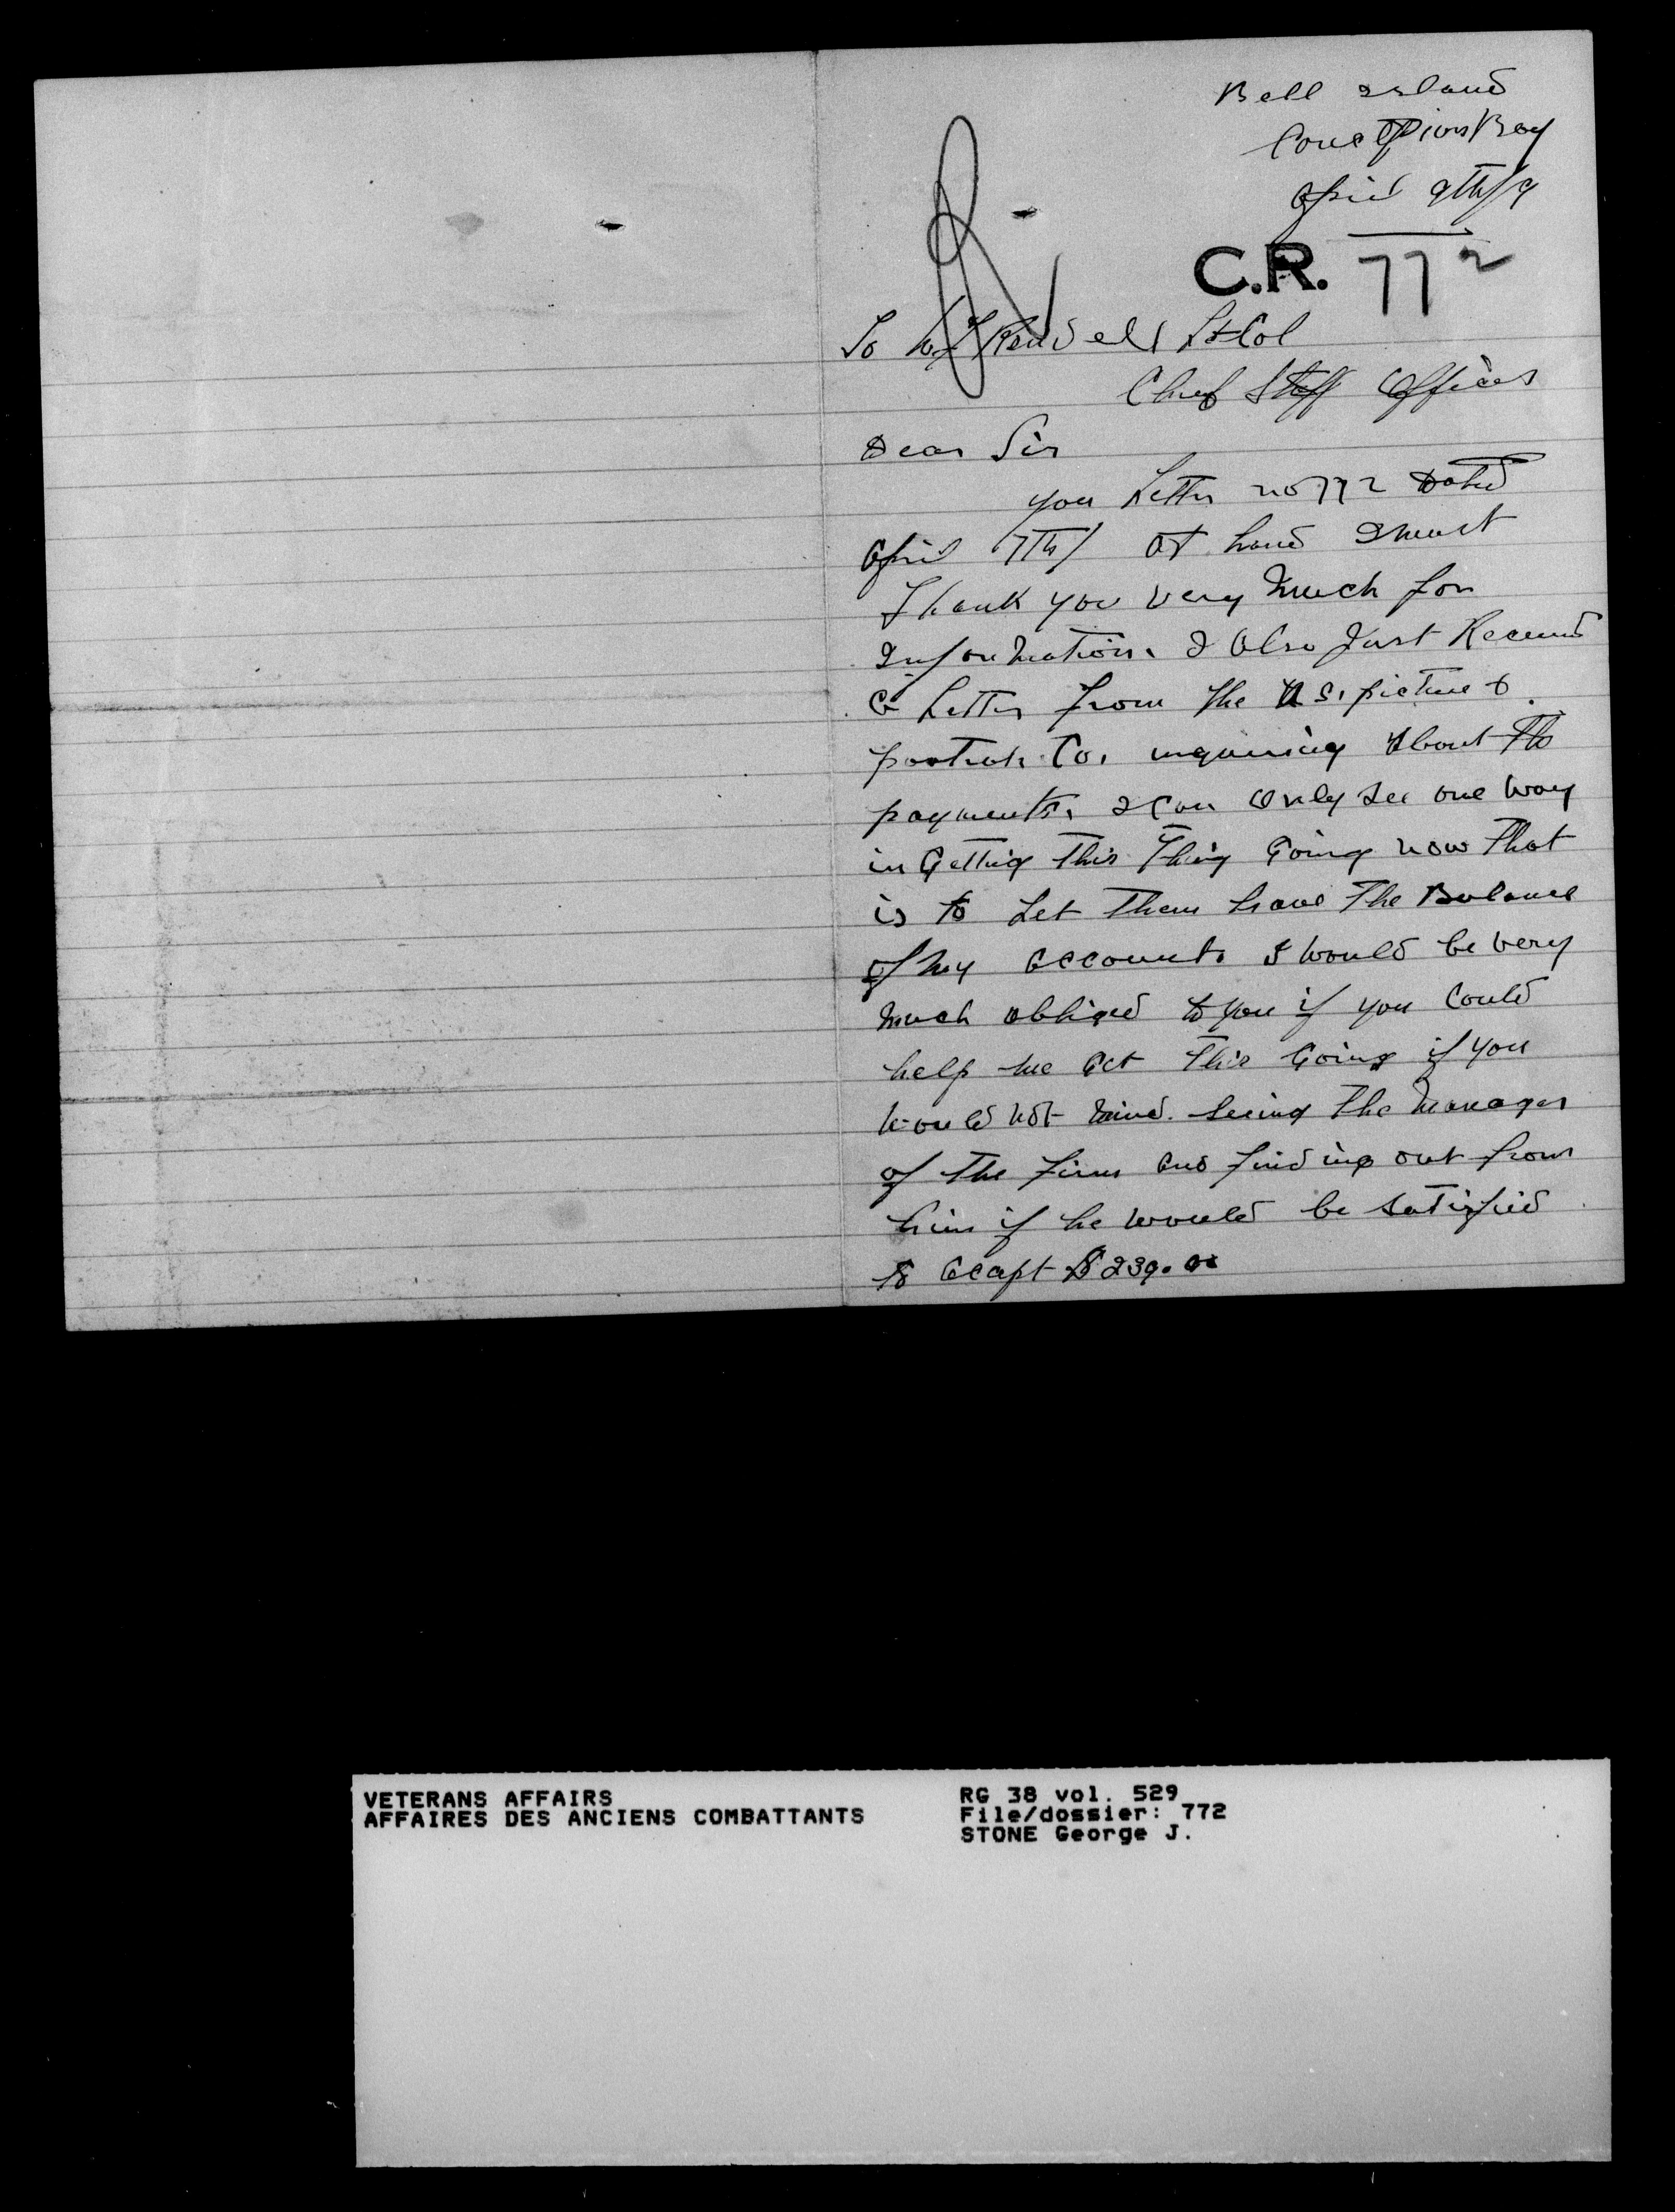 Bell Island
Conception Bay
April 9th/19
C.R. 772
To W F Rendell Lt Col
Chief Staff Officer
Dear Sir
you Letter no 772 Dated
April 7th/ at hand I must
Thank you very Much for
Information. I Also Just Received
a Letter from the U.S. picture &
portrait Co. inquiring About the
payments. I Can Only See one Way
in Getting this Thing Going now that
is to Let them have The Balance
of my account. I would be very
much obliged to you if you Could
help me Get this Going if you
would not mind. Seeing the Manager
of the firm and finding out from
him if he would be satisfied
to Accapt $239.00
VETERANS AFFAIRS
AFFAIRES DES ANCIENS COMBATTANTS
RG 38 vol. 529
File/dossier: 772
STONE George J.